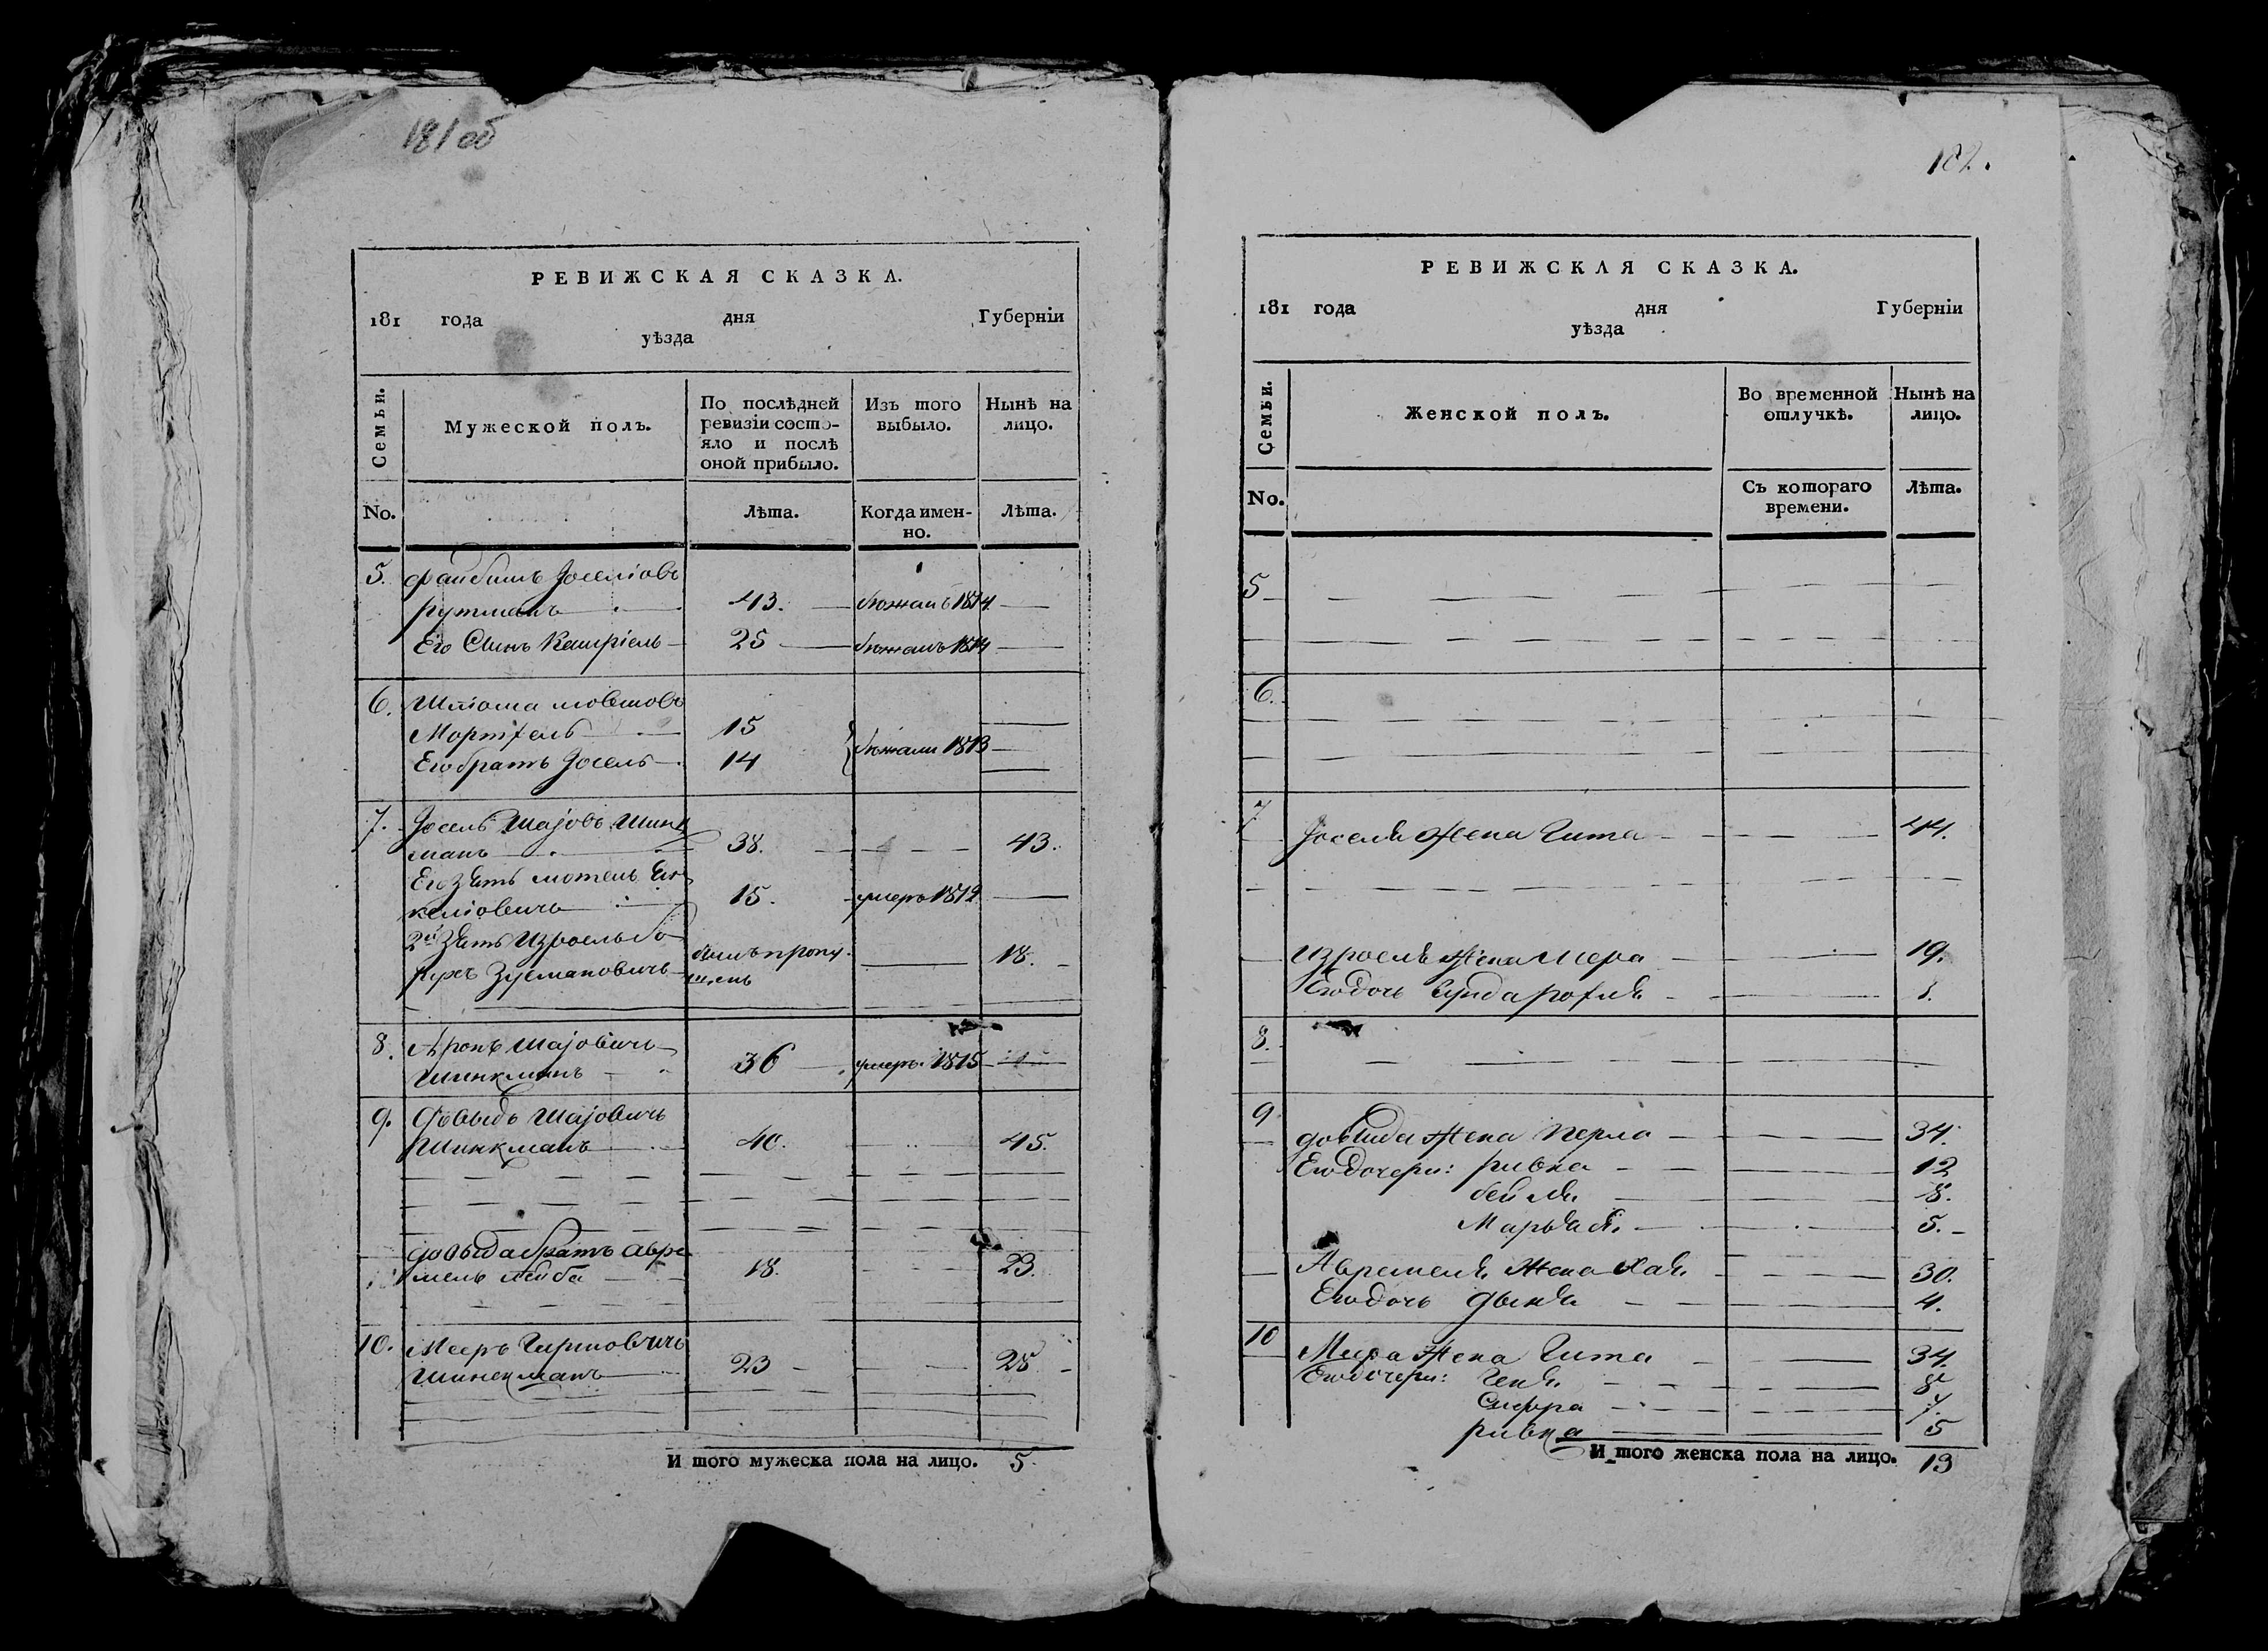 181 об
РЕВИЖСКАЯ СКАЗКА.
181 года дня Губерніи
уѣзда
Семьи.
Мужеской полъ.
По послѣдней ревизіи состо-
яло и послѣ
оной прибыло.
Изъ того выбыло.
Нынѣ на лицо.
No.
Лѣта.
Когда имен-
но.
Лѣта.
5. Файбишъ Јоселіовъ
рутманъ 43. бѣжалъ 1814
Его Сынъ 25 бѣжалъ 1814
6. Шліома мовшовъ
15
Его братъ Јосель 14 бѣжали 1813
7. Јосель Шајовъ Шинк
манъ 38. 43.
Его зять мотель Ян
келіовичъ 15. умеръ 1812
2й зять Изроель бо
рухъ Зусмановичъ былъ пропу
щенъ 18.
8. Аронъ Шајовичъ
Шинкманъ 36 умеръ 1815
9. Довыдъ Шајовичъ
Шинкманъ 40. 45.
довыда братъ Авре
мель лейба 18. 23.
10. Мееръ Гиршовичъ
Шинекманъ 23 28
И того мужеска пола на лицо. 5
182.
РЕВИЖСКАЯ СКАЗКА.
181 года дня Губерніи
уѣзда
Семьи.
Женской полъ.
Во временной
отлучкѣ.
Нынѣ на
лицо.
No.
Съ котораго
времени.
Лѣта.
5
6.
7 Јоселя Жена Гита 44.
Изроеля Жена Мера 19.
Его дочь 1.
8.
9 довида Жена Перла 34.
Его дочери: ривка 12
бейля 8.
Марьяся 5.
Авремеля Жена Хая 30.
Его дочь дыня 4.
10 Меера Жена Гита 34.
Его дочери: Геня 8
Сифра 7.
ривка 5
И того женска пола на лицо. 13